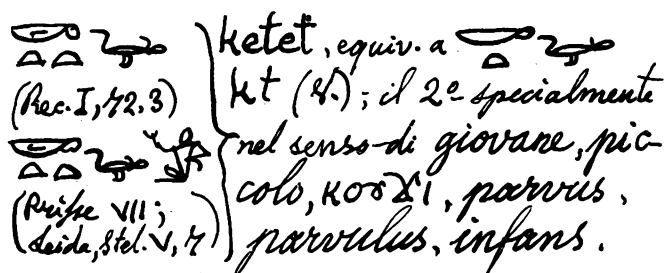 𓎡𓏏𓏏𓅪
(Rec. I, 72. 3)
𓎡𓏏𓏏𓅪
(Prisse VII;
Leida, stel. V, 7)
ketet, equiv. a 𓎡𓏏𓅪
kt (V.); il 2º specialmente
nel senso di giovane, pic-
colo, ⲕⲟⲩϫⲓ, parvus,
parvulus, infans.